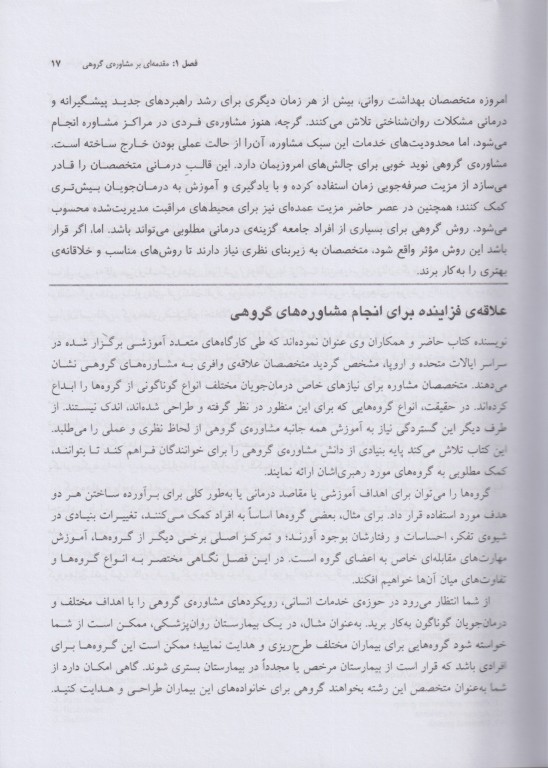 فصل ۱: مقدمه‌ای بر مشاوره‌ی گروهی ۱۷
امروزه متخصصان بهداشت روانی، بیش از هر زمان دیگری برای رشد راهبردهای جدید پیشگیرانه و
درمانی مشکلات روان‌شناختی تلاش می‌کنند. گرچه، هنوز مشاوره‌ی فردی در مراکز مشاوره انجام
می‌شود، اما محدودیت‌های خدمات این سبک مشاوره، آن‌را از حالت عملی بودن خارج ساخته است.
مشاوره‌ی گروهی نوید خوبی برای چالش‌های امروزیمان دارد. این قالب درمانی متخصصان را قادر
می‌سازد از مزیت صرفه‌جویی زمان استفاده کرده و با یادگیری و آموزش به درمان‌جویان بیش‌تری
کمک کنند؛ همچنین در عصر حاضر مزیت عمده‌ای نیز برای محیط‌های مراقبت مدیریت‌شده محسوب
می‌شود. روش گروهی برای بسیاری از افراد جامعه گزینه‌ی درمانی مطلوبی می‌تواند باشد. اما، اگر قرار
باشد این روش مؤثر واقع شود، متخصصان به زیربنای نظری نیاز دارند تا روش‌های مناسب و خلاقانه‌ی
بهتری را به‌کار برند.
علاقه‌ی فزاینده برای انجام مشاوره‌های گروهی
نویسنده کتاب حاضر و همکاران وی عنوان نموده‌اند که طی کارگاه‌های متعدد آموزشی برگزار شده در
سراسر ایالات متحده و اروپا، مشخص گردید متخصصان علاقه‌ی وافری به مشاوره‌های گروهی نشان
می‌دهند. متخصصان مشاوره برای نیازهای خاص درمان‌جویان مختلف انواع گوناگونی از گروه‌ها را ابداع
کرده‌اند. در حقیقت، انواع گروه‌هایی که برای این منظور در نظر گرفته و طراحی شده‌اند، اندک نیستند. از
طرف دیگر این گستردگی نیاز به آموزش همه جانبه مشاوره‌ی گروهی از لحاظ نظری و عملی را می‌طلبد.
این کتاب تلاش می‌کند پایه بنیادی از دانش مشاوره‌ی گروهی را برای خوانندگان فراهم کند تا بتوانند،
کمک مطلوبی به گروه‌های مورد رهبری‌اشان ارائه نمایند.
گروه‌ها را می‌توان برای اهداف آموزشی یا مقاصد درمانی یا به‌طور کلی برای برآورده ساختن هر دو
هدف مورد استفاده قرار داد. برای مثال، بعضی گروه‌ها اساساً به افراد کمک می‌کنند، تغییرات بنیادی در
شیوه‌ی تفکر، احساسات و رفتارشان بوجود آورند؛ و تمرکز اصلی برخی دیگر از گروه‌ها، آموزش
مهارت‌های مقابله‌ای خاص به اعضای گروه است. در این فصل نگاهی مختصر به انواع گروه‌ها و
تفاوت‌های میان آن‌ها خواهیم افکند.
از شما انتظار می‌رود در حوزه‌ی خدمات انسانی، رویکردهای مشاوره‌ی گروهی را با اهداف مختلف و
درمان‌جویان گوناگون به‌کار برید. به‌عنوان مثال، در یک بیمارستان روان‌پزشکی، ممکن است از شما
خواسته شود گروه‌هایی برای بیماران مختلف طرح‌ریزی و هدایت نمایید؛ ممکن است این گروه‌ها برای
افرادی باشد که قرار است از بیمارستان مرخص یا مجدداً در بیمارستان بستری شوند. گاهی امکان دارد از
شما به‌عنوان متخصص این رشته بخواهند گروهی برای خانواده‌های این بیماران طراحی و هدایت کنید.